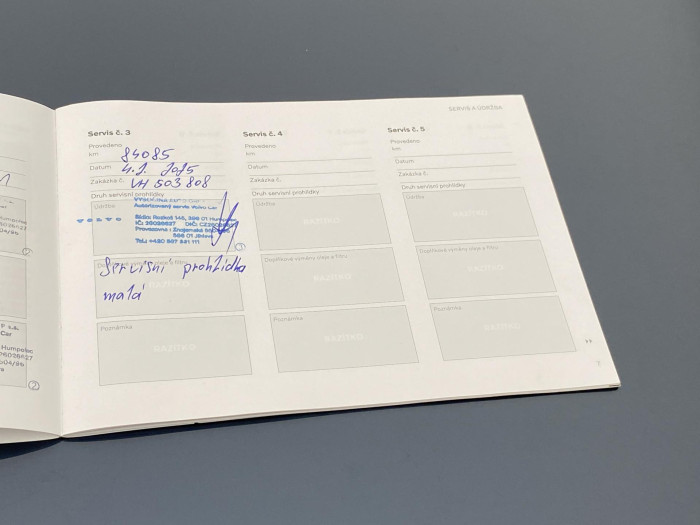 SERVIS A ÚDRŽBA
Servis č. 3
Provedeno
km 84085
Datum 4.2. 2025
Zakázka č. VH 503 808
Druh servisní prohlídky
Údržba
Autorizovaný servis Volvo Car
VOLVO
Sídlo: Rozkoš 145, 396 01 Humpolec
IČ: 26026627 DIČ:
Provozovna: Znojemská
586 01 Jihlava
Tel.: +420 567 331 111
1
Doplňková výměna oleje a filtru
Servisní prohlídka
malá
RAZÍTKO
Poznámka
RAZÍTKO
Servis č. 4
Provedeno
km
Datum
Zakázka č.
Druh servisní prohlídky
Údržba
RAZÍTKO
Doplňková výměna oleje a filtru
RAZÍTKO
Poznámka
RAZÍTKO
Servis č. 5
Provedeno
km
Datum
Zakázka č.
Druh servisní prohlídky
Údržba
RAZÍTKO
Doplňková výměna oleje a filtru
RAZÍTKO
Poznámka
RAZÍTKO
Humpolec
2
Car
Humpolec
26026627
2